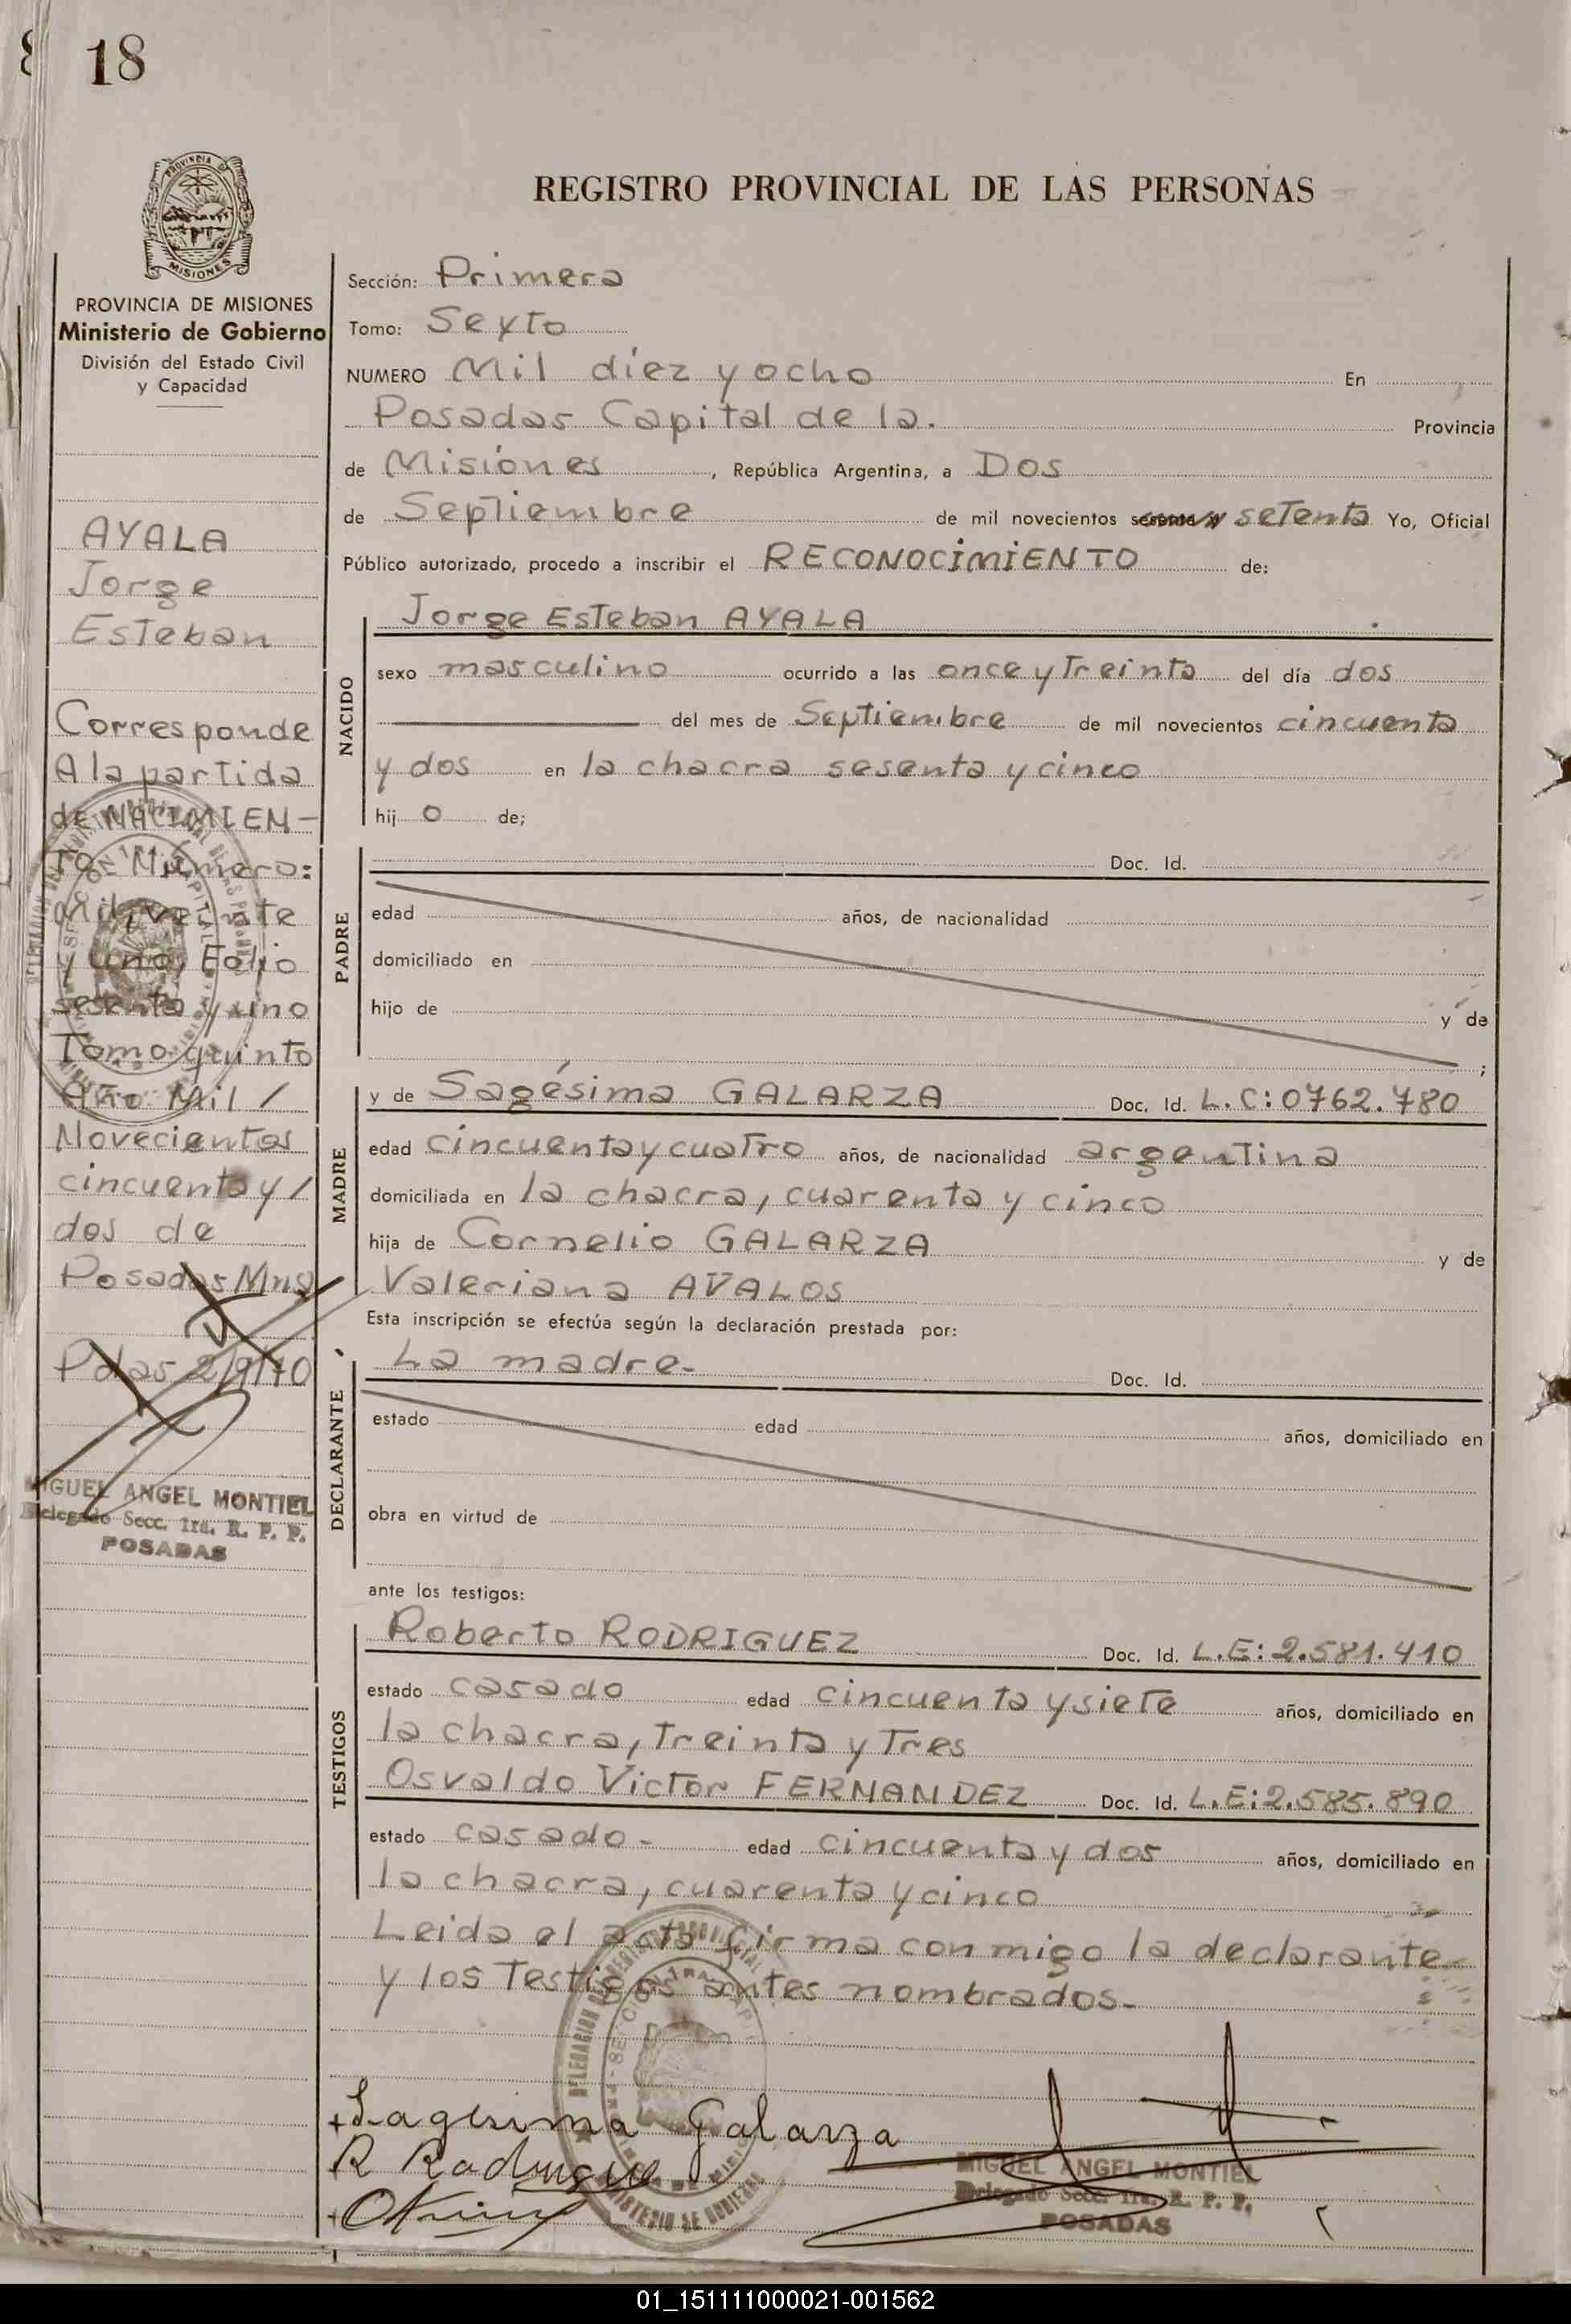 18
REGISTRO PROVINCIAL DE LAS PERSONAS
PROVINCIA DE MISIONES
PROVINCIA DE MISIONES
Ministerio de Gobierno
División del Estado Civil
y Capacidad
AYALA
Jorge
Esteban
Corresponde
A la partida
de NACIMIEN-
To. Número:
Mil veinte
y uno, Folio
sesenta y uno
Tomo quinto
Año Mil /
Novecientos
cincuenta y /
dos de
Posadas Mns
Pdas 2/9/70
MIGUEL ANGEL MONTIEL
Delegado Secc. 1ra. R. P. P.
POSADAS
Sección: Primera
Tomo: Sexto
NUMERO Mil diez y ocho En
Posadas Capital de la. Provincia
de Misiones, República Argentina, a Dos
de Septiembre de mil novecientos setenta Yo, Oficial
Público autorizado, procedo a inscribir el RECONOCIMIENTO de:
NACIDO
Jorge Esteban AYALA
sexo masculino ocurrido a las once y Treinta del día dos
del mes de Septiembre de mil novecientos cincuenta
y dos en la chacra sesenta y cinco
hij o de;
PADRE
Doc. Id.
edad años, de nacionalidad
domiciliado en
hijo de y de
;
MADRE
y de Sagésima GALARZA Doc. Id. L.C:0762.780
edad cincuenta y cuatro años, de nacionalidad argentina
domiciliada en la chacra, cuarenta y cinco
hija de Cornelio GALARZA y de
Valeriana AVALOS
Esta inscripción se efectúa según la declaración prestada por:
DECLARANTE
La madre- Doc. Id.
estado edad años, domiciliado en
obra en virtud de
ante los testigos:
TESTIGOS
Roberto RODRIGUEZ Doc. Id. L.E:2.581.410
estado casado edad cincuenta y siete años, domiciliado en
la chacra, Treinta y Tres
Osvaldo Victor FERNANDEZ Doc. Id. L.E:2.585.890
estado casado- edad cincuenta y dos años, domiciliado en
la chacra, cuarenta y cinco
Leida el acta firma conmigo la declarante
y los Testigos antes nombrados-
Sagesima Galarza
R Rodriguez
MIGUEL ANGEL MONTIEL
Delegado Secc. 1ra. R. P. P.
POSADAS
01_151111000021-001562